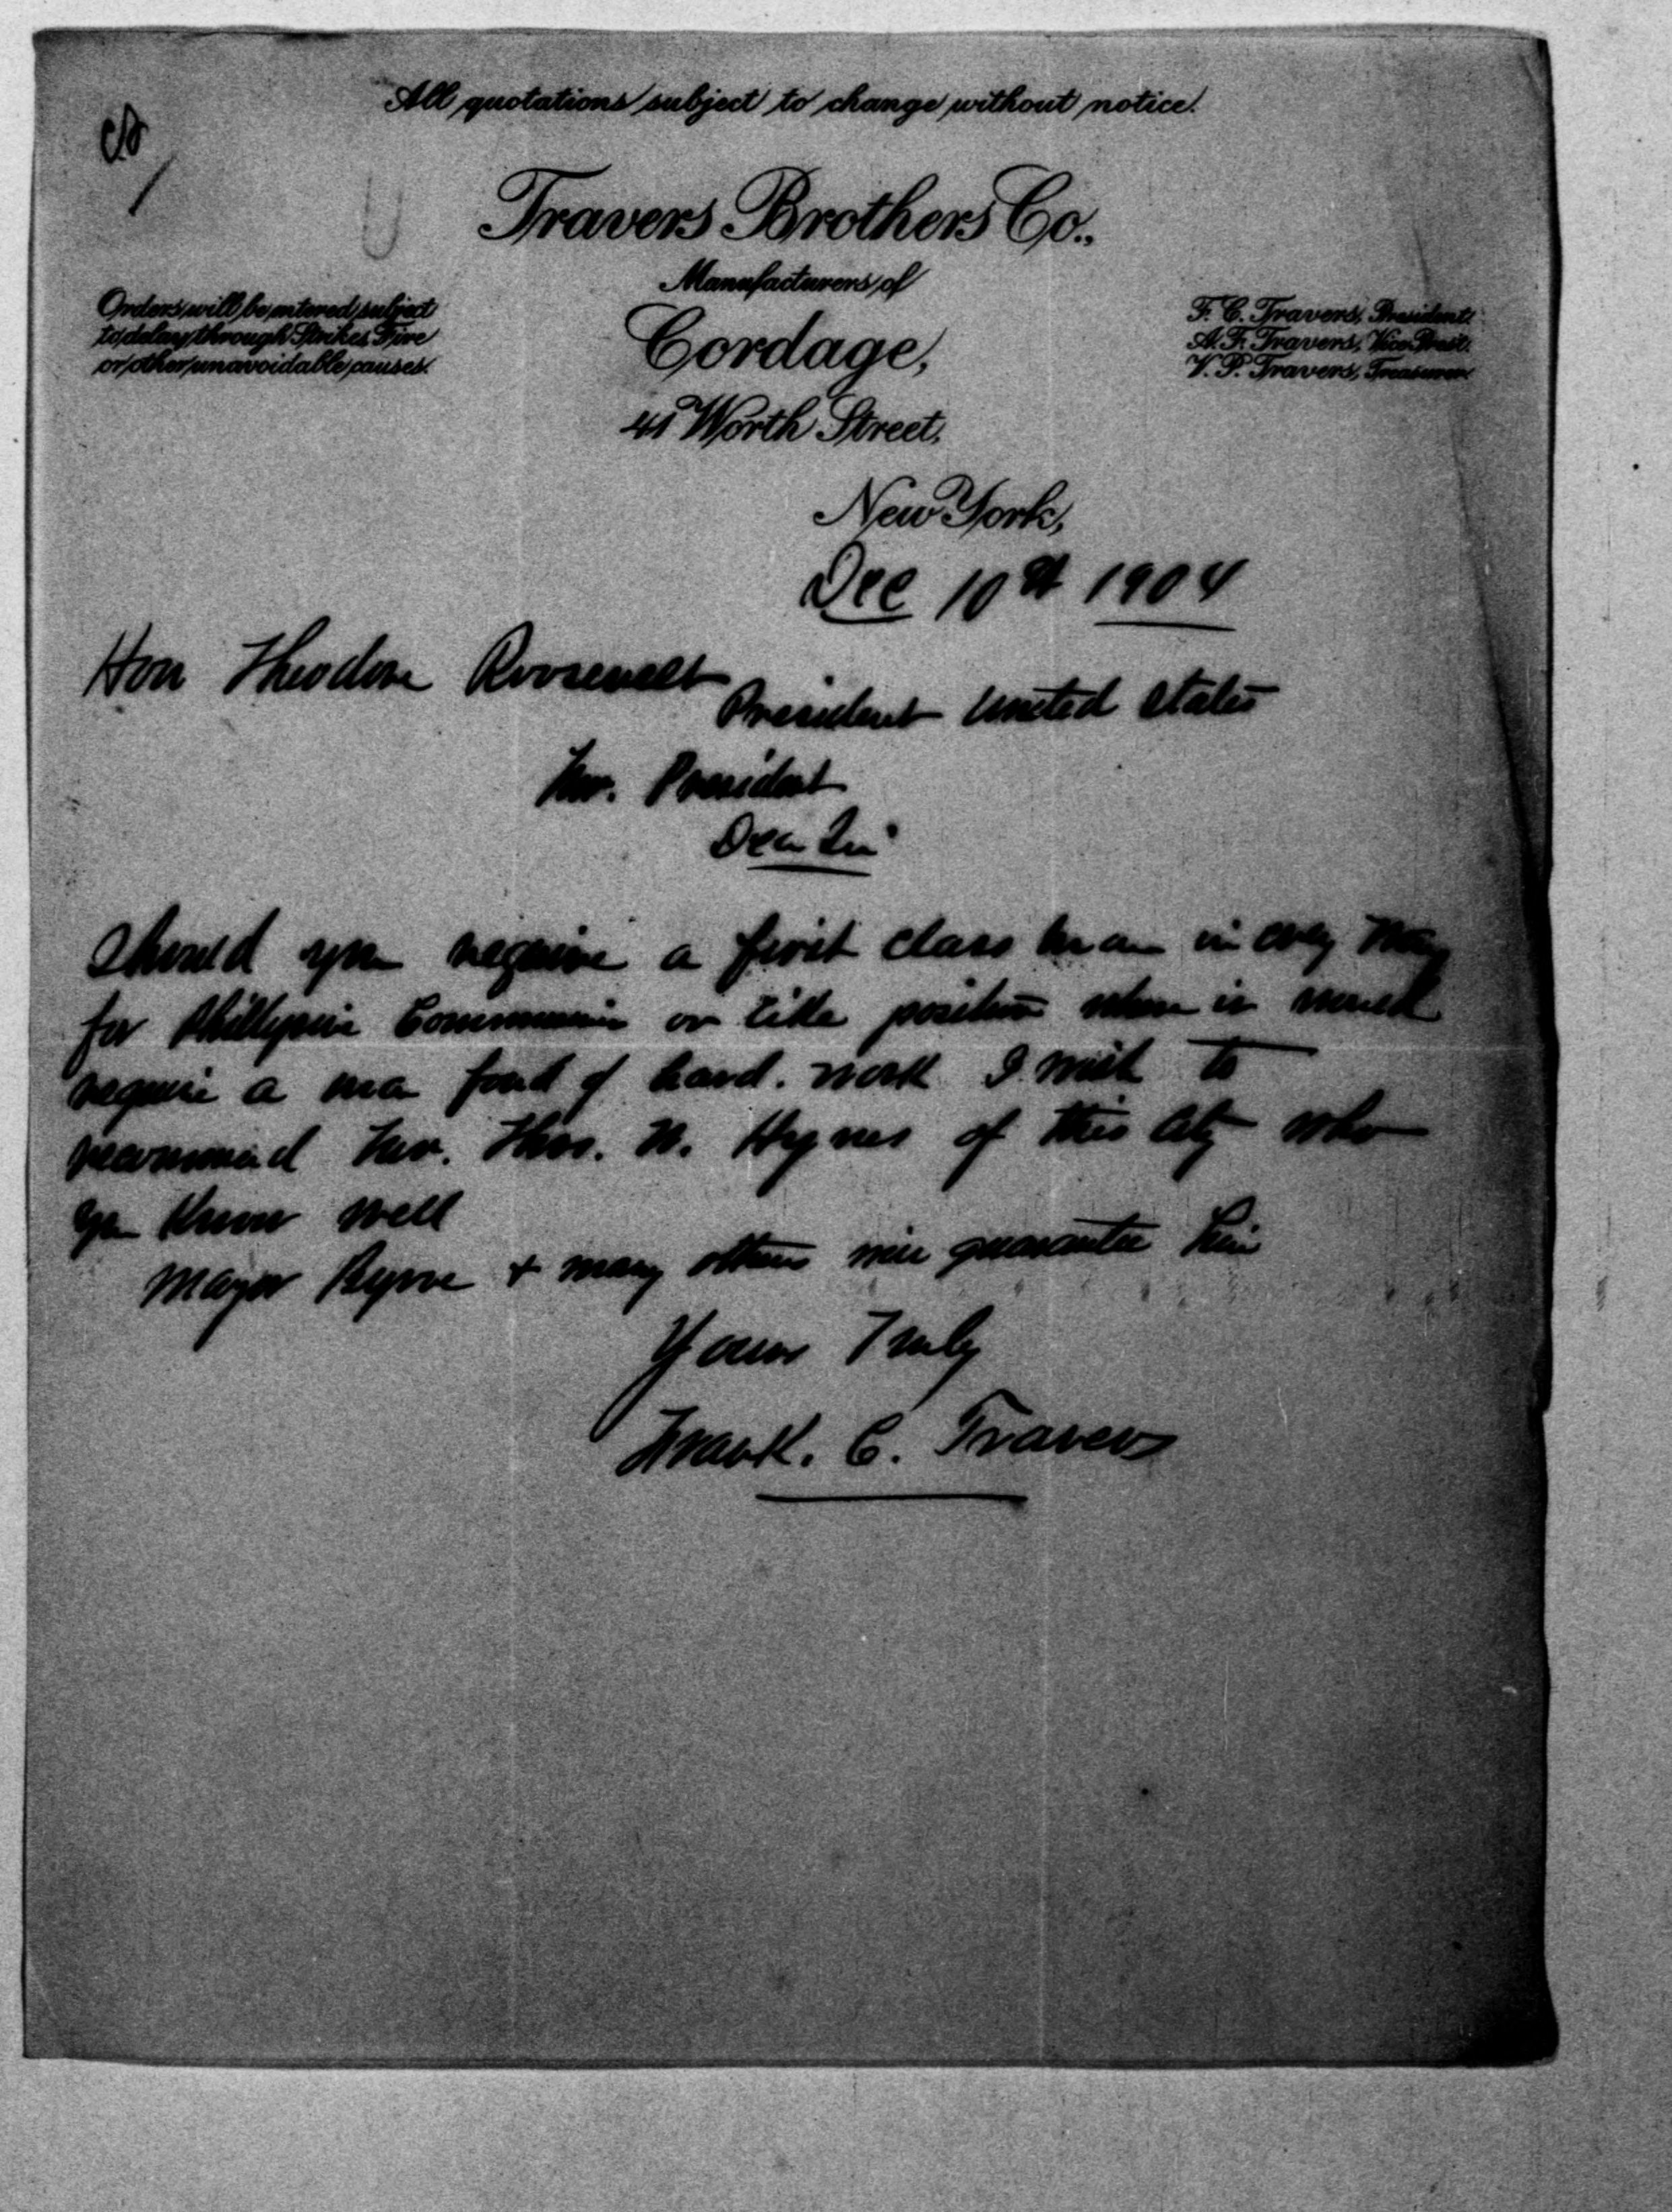 All quotations subject to change without notice.
Travers Brothers Co.,
Manufacturers of
Cordage,
41 Worth Street,
Orders will be entered subject
to delay through Strikes Fire
or other unavoidable causes.
F. C. Travers, President.
A. F. Travers, Vice Prest.
V. P. Travers, Treasurer.
New York,
Dec 10th 1904
Hon Theodore Roosevelt
President United States
Mr. President
Dear Sir
Should you require a first class man in every way
for Phillipine Commission or like position where it would
require a man fond of hard. work I wish to
recommend Mr. Thos. N. Hynes of this City who
you know well
Mayor Byrne + many others will guarantee him
Yours Truly
Frank. C. Travers